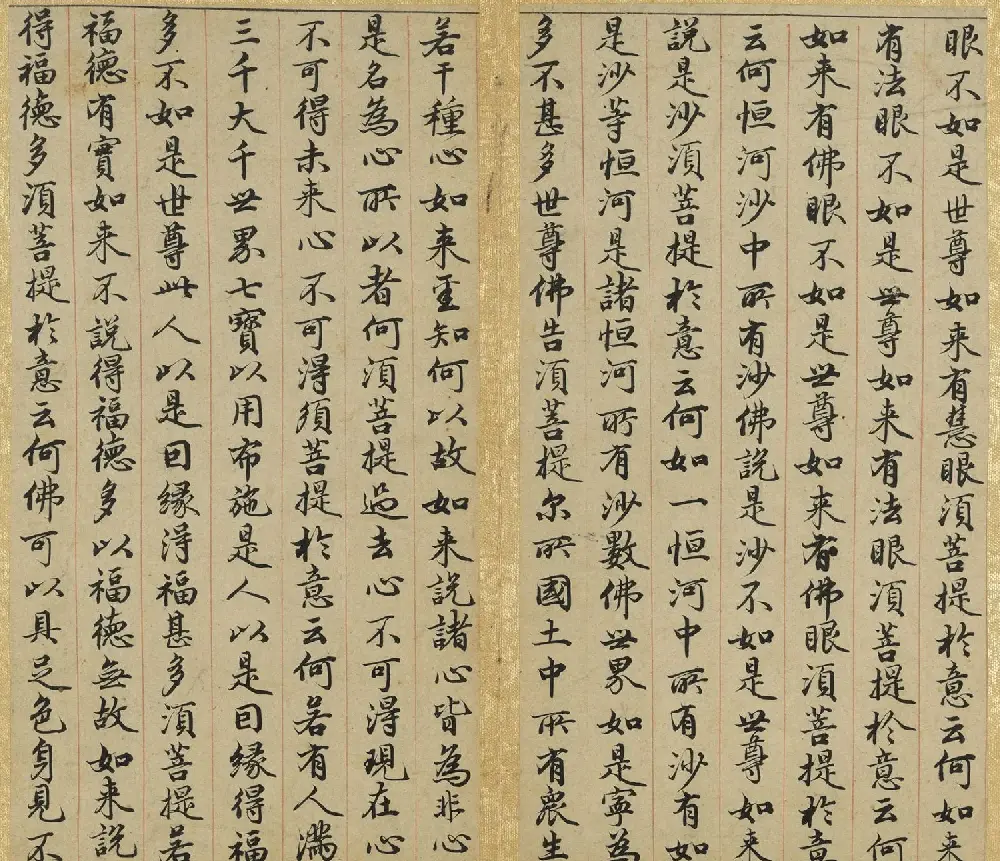 眼不如是世尊如来有慧眼須菩提於意云何如来
有法眼不如是世尊如来有法眼須菩提於意云何
如来有佛眼不如是世尊如来有佛眼須菩提於意
云何恒河沙中所有沙佛說是沙不如是世尊如来
說是沙須菩提於意云何如一恒河中所有沙有如
是沙等恒河是諸恒河所有沙數佛世界如是寧為
多不甚多世尊佛告須菩提尒所國土中所有衆生
若干種心如来悉知何以故如来說諸心皆為非心
是名為心所以者何須菩提過去心不可得現在心
不可得未来心不可得須菩提於意云何若有人滿
三千大千世界七寶以用布施是人以是因緣得福
多不如是世尊此人以是因緣得福甚多須菩提若
福德有實如来不說得福德多以福德無故如来說
得福德多須菩提於意云何佛可以具足色身見不